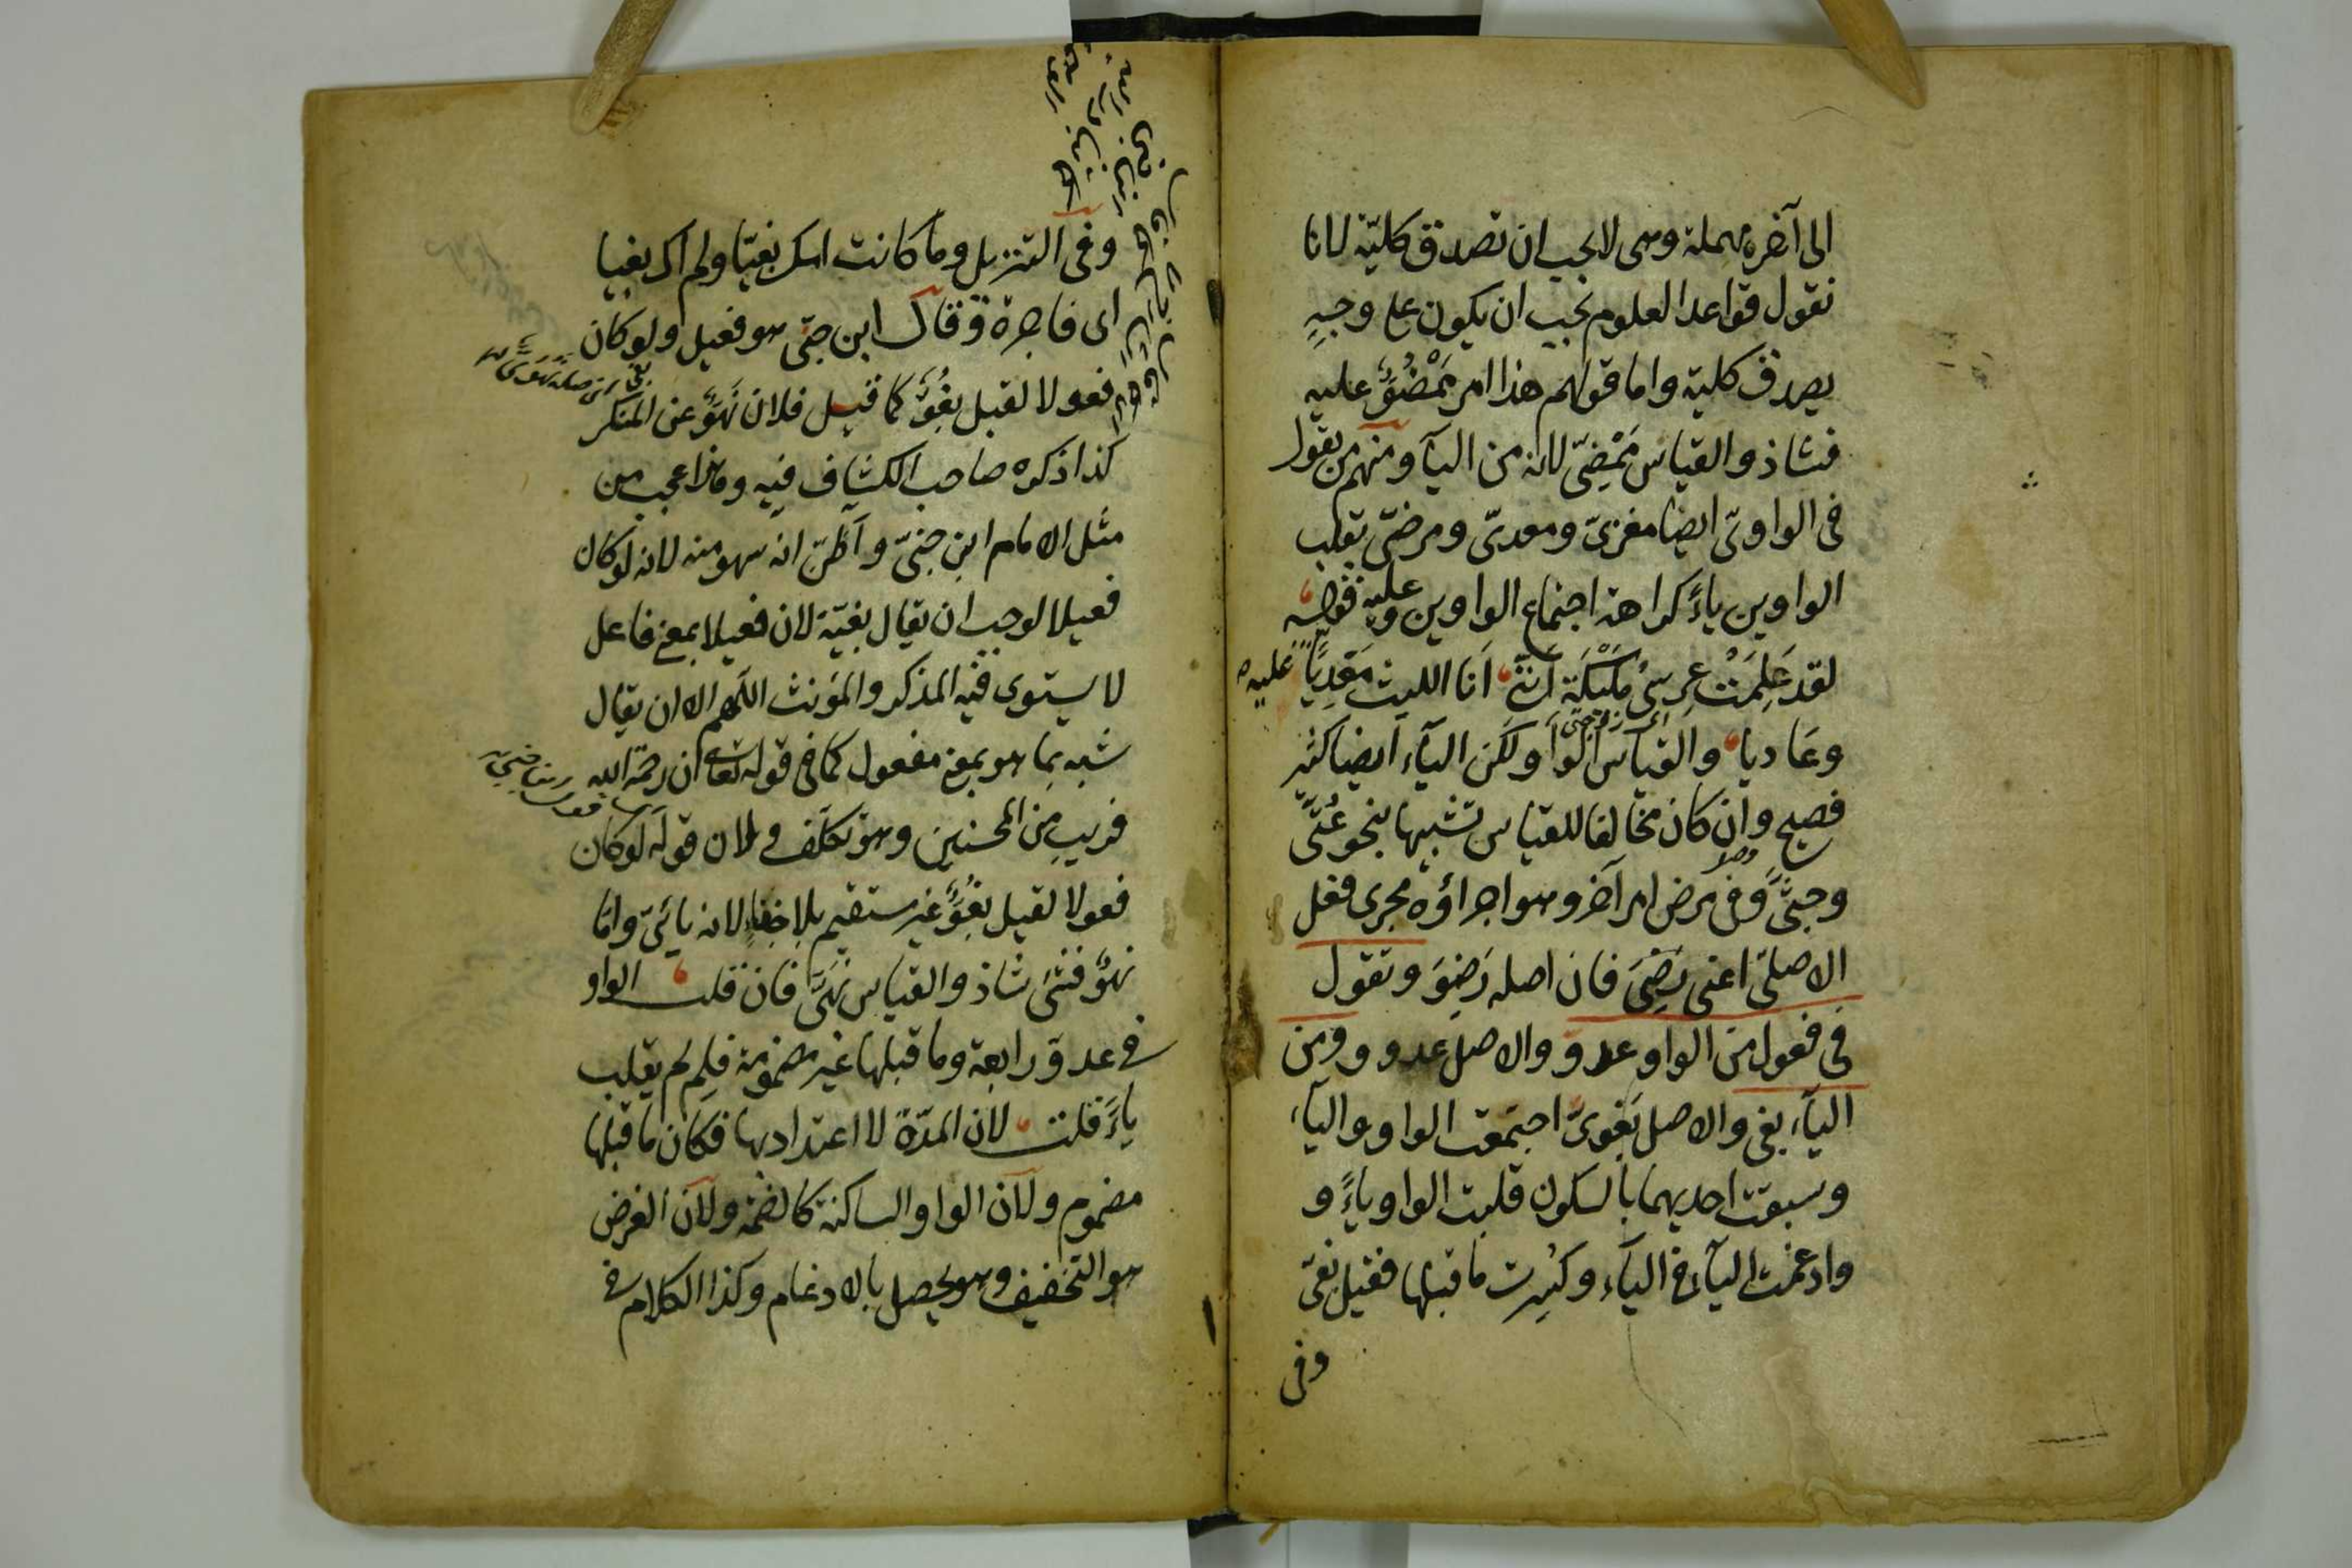 الى آخره مهملة وهى لا يجب ان تصدق كلية لانا
نقول قواعد العلوم يجب ان يكون على وجهٍ
يصدق كلية واما قولهم هذا امر مَمْضُوٌّ عليه
فشاذ والقياس مَمْضِىّ لانه من اليآ ومنهم من يقول
فى الواوىّ ايضا مغزىّ ومعدىّ ومرضىّ بقلب
الواوين ياءً كراهة اجتماع الواوين وعليه قوله
لقد عَلِمَتْ عِرسىُ مُلَيْكَة اَنّنى اَنا الليث مَعْدِيّاً عليه
اى زوجتى
وعَاديا والقياس الواو ولكن اليآء ايضا كثير
فصيح وان كان مخالفا للقياس تشبيها بنحو عُتىّ
وجثىّ وفى مرضىّ امر آخر وهو اجراؤه مجرى فعل
الاصلىّ اعنى رَضِىَ فان اصله رَضِوَ وتقول
فى فعول من الواو عدوّ والاصل عدوو ومن
اليآء بغى والاصل بَغوىٌ اجتمعت الواو واليآء
وسبقت احديهما بالسكون قلبت الواو ياءً و
وادغمت اليآء فى اليآء وكُسِرت ما قبلها فقيل بَغىّ
وفى
وفى التنزيل وما كانت امك بغيّا ولم اك بغيا
اى فاجرة وقال ابن جنّى هو فعيل ولو كان
فعولا لقيل بغُوٌّ كما قيل فلان نَهُوٌّ عن المنكر
كذا ذكره صاحب الكشاف فيه وهذا عجب من
مثل الامام ابن جنىّ وآظنّ انه سهو منه لانه لو كان
فعيلا لوجب ان يقال بغيّة لان فعيلا بمعنى فاعل
لا يستوى فيه المذكر والمؤنث اللهم الا ان يقال
شبه بما هو بمعنى مفعول كما فى قوله تعالى ان رحمة الله
قريب من المحسنين وهو تكلف ولان قوله لو كان
فعولا لقيل بغُوٌّ غير مستقيم بلا خفاءٍ لانه يائىّ وامّا
نهوٌّ فشئ شاذ والقياس نَهىٌّ فان قلت الواو
فى عدوّ رابعة وما قبلها غير مضمومة فلِمَ لم يقلب
ياءً قلت لان المدّة لا اعتداد بها فكان ما قبلها
مضموم ولآن الواو الساكنة كالضمة ولآن الغرض
هو التخفيف وهو يحصل بالادغام وكذا الكلام فى